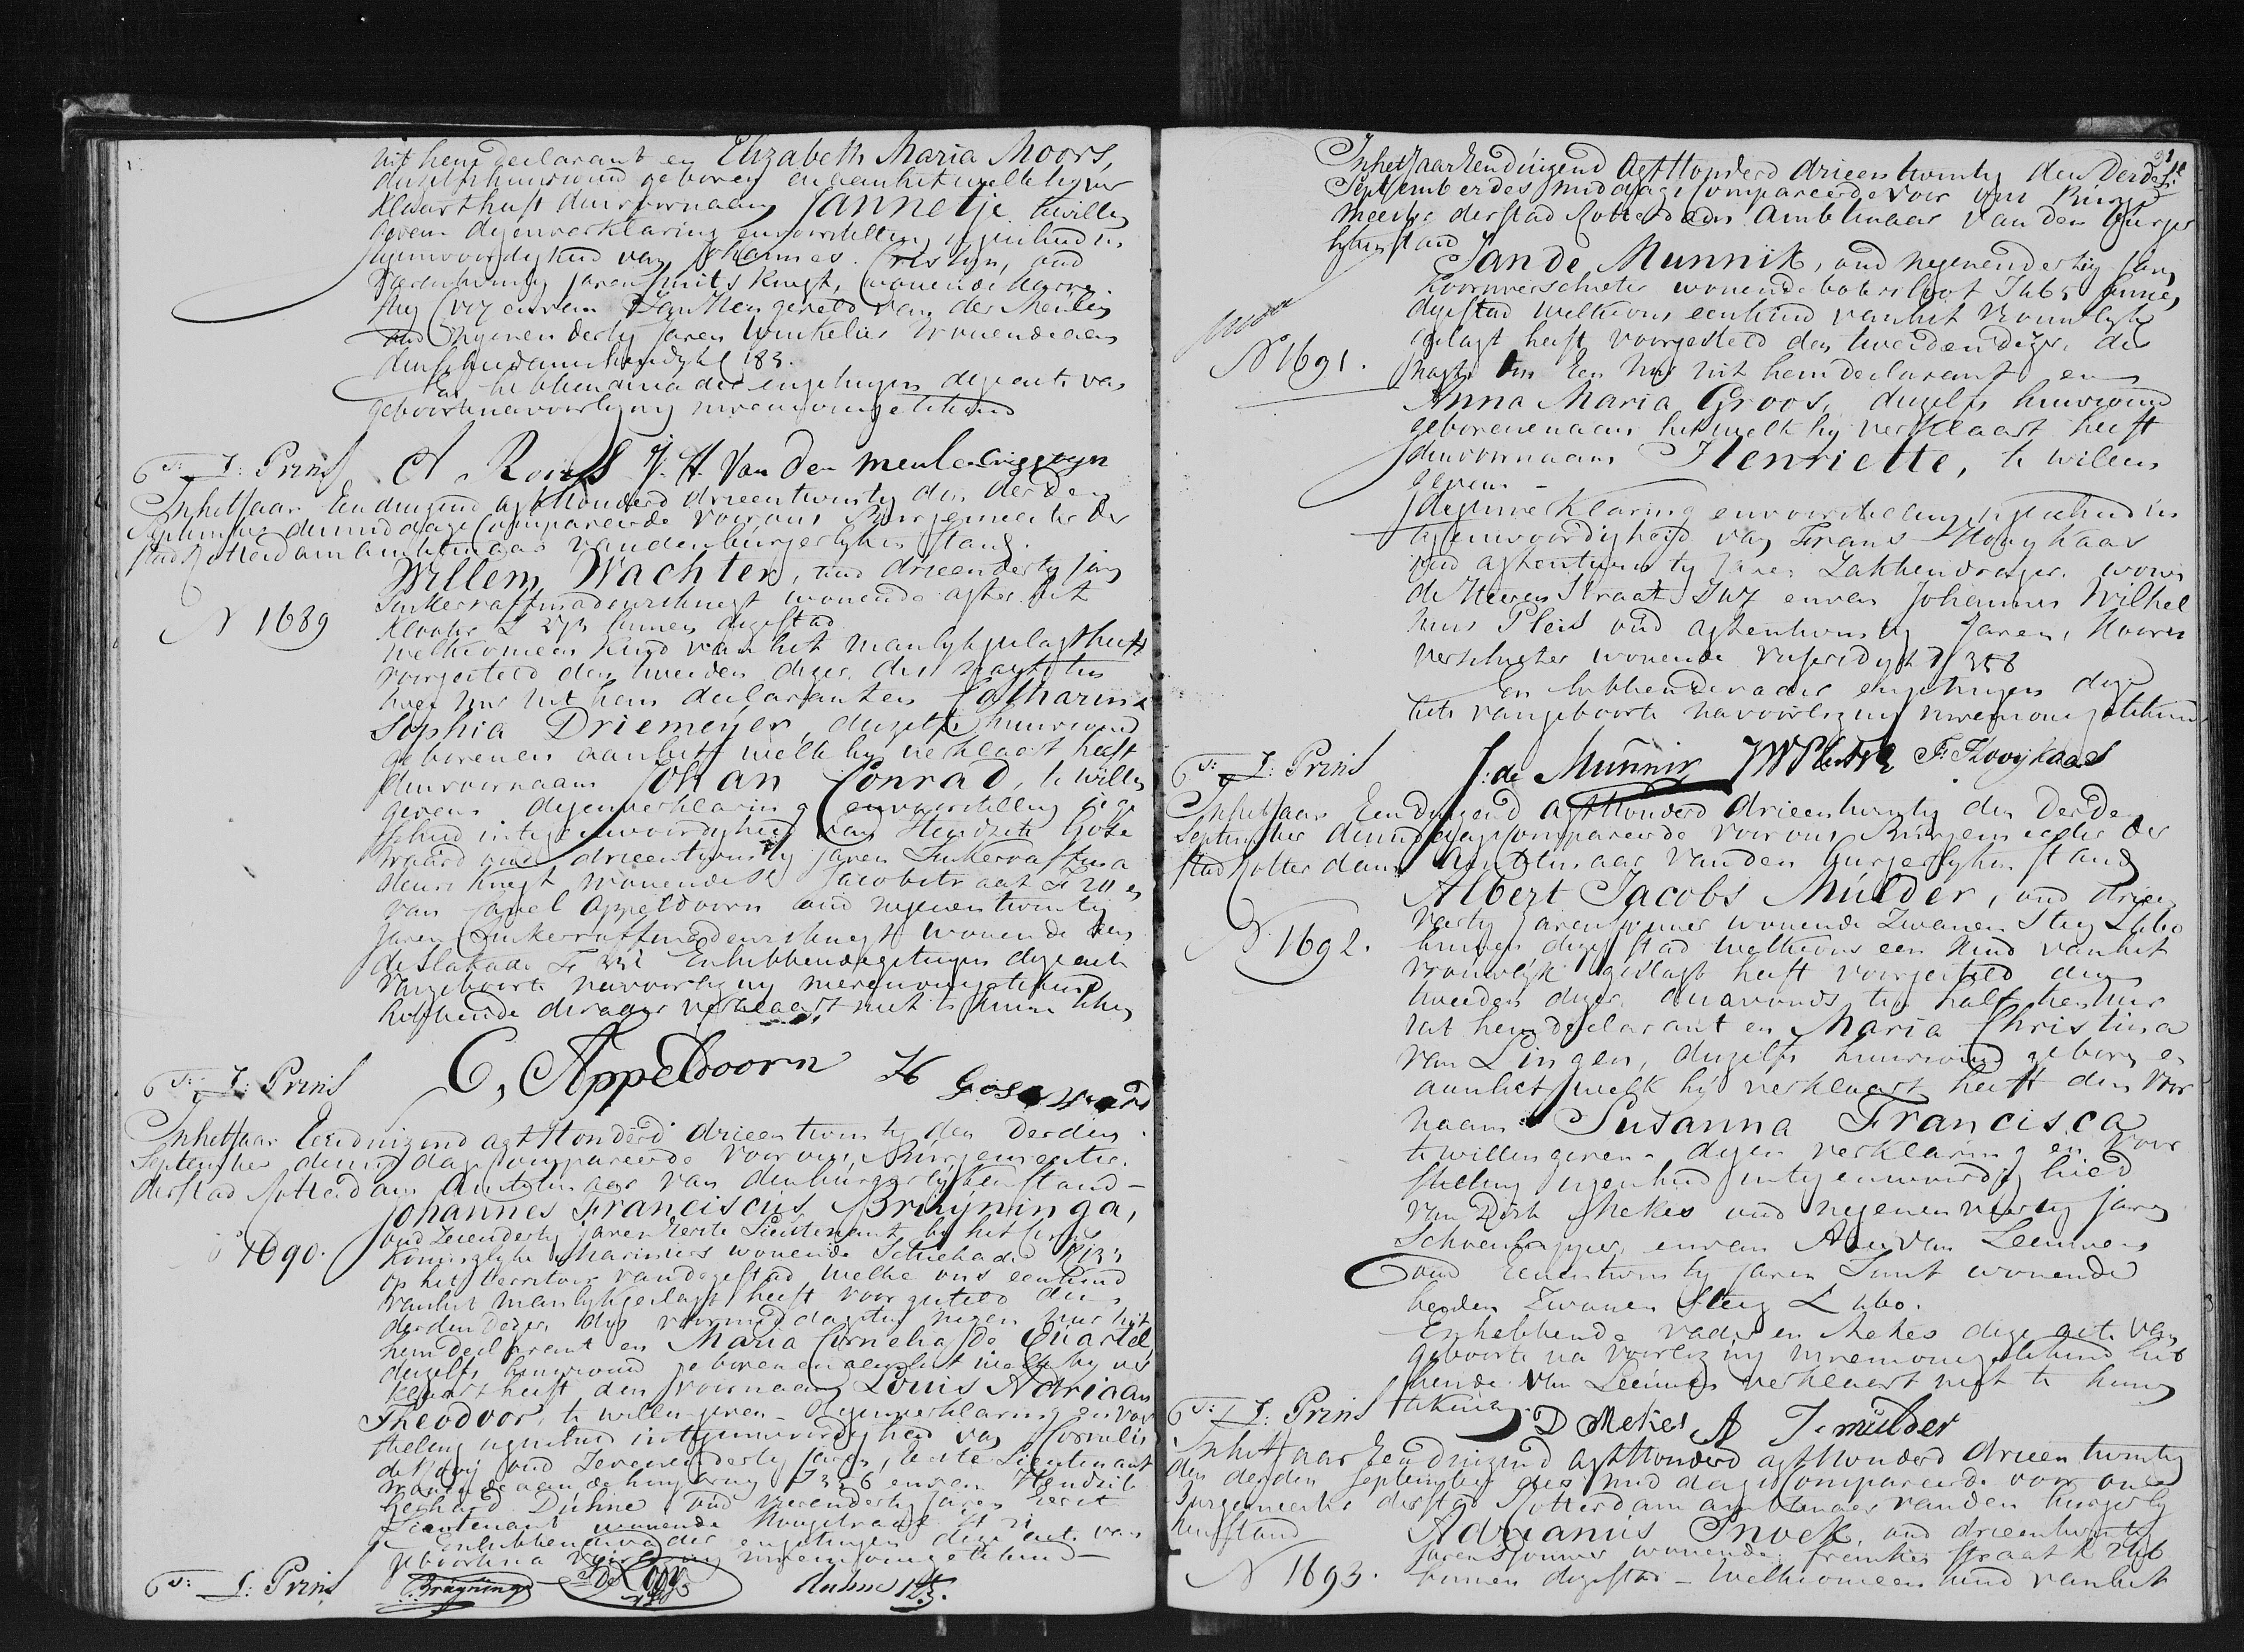 uit hem declarant en Elizabeth Maria Moors,
deszelfs huisvrouw geboren en aan het welk hij ver
klaart heeft den voornaam Jannetje te willen
geven dezen verklaring en voorstelling is geschied in
tegenwoordigheid van Johannes Crestyn, oud
jaren smits knegt, wonende
en van Jan Hengeveld van der Meulen
oud negenendertig jaren Winkelier wonende aan
den Schiedamschendyk 183.
En hebbende vader en getuigen deze acte van
geboorte na voorlezing nevens ons getekend
get: J: Prins A Roos J. H. Van der Meulen
In het Jaar Eenduizend agthonderd drieentwintig den derden
September des middags Compareerde voor ons Burgemeester der
stad Rotterdam ambtenaar van den burgerlyken stand.
Willem Wachter, oud drieendertig Jaren
Suikerraffinadeursknegt wonende agter het
N 1689
Klooster L 373 binnen deze stad
welke ons een Kind van het manlyk geslagt heeft
voorgesteld den tweeden dezer des nagts ten
twee uur uit hem declarant en Catharina
Sophia Driemeyer, deszelfs huisvrouw
geboren en aan het welk hij verklaart heeft
den voornaam Johan Conrad, te willen
geven dezen verklaring en voorstelling is ge
schied in tegenwoordigheid van Hendrik Gose
waard oud drieentwintig jaren Suikerraffina
deurs knegt wonende St Jacobstraat F 20 en
van Carel Appeldoorn oud negenentwintig
Jaren Suikerraffinadeursknegt wonende aan
de Slakade F 332 En hebbende getuigen deze acte
van geboorte na voorlezing nevens ons getekend
hebbende de vader verklaart niet te kunnen teken
get: J: Prins C, Appeldoorn H Gosewaard
In het Jaar Eenduizend agthonderd drieentwintig den derden
September des middags Compareerde voor ons Burgemeester
der stad Rotterdam Ambtenaar van den burgerlyken stand -
Johannes Franciscus Bruijninga,
oud Zevendertig jaren Eerste Lieutenant bij het Corps
N 1690.
Koninglyke Mariniers wonende Schiekade
op het territoir van deze stad, welke ons een kind
van het manlyk geslagt heeft voorgesteld den
derden dezer des voormiddags ten negen uur uit
hem declarant en Maria Cornelia de Quartel,
deszelfs huisvrouw geboren en aan het welk hij ver
klaart heeft den voornaam Louis Adriaan
Theodoor, te willen geven - dezen verklaring en voor
stelling is geschied in tegenwoordigheid van Cornelis
de Kooij oud Zevenendertig jaren, Eerste Lieutenant
wonende aan de 1356 en van Hendrik
Gerhard Duhne oud vierendertig jaren Eerst
Lieutenant wonende Hoogstraat
En hebbende vader en getuigen deze acte van
geboorte na voorlezing nevens ons getekend -
get: J: Prins Bruijninga
In het Jaar Eenduizend Agthonderd drieentwintig den Derden
September des middags Compareerde voor ons Burge
meester der stad Rotterdam Ambtenaar van den burger
lyken stand
Jan de Munnik, oud negenendertig Jaren
Koornverschieter wonende botersloot I 465 binnen
deze stad welke ons een kind van het Vrouwlyk
N 1691.
geslagt heeft voorgesteld den tweeden dezer des
nagts ten Een uur uit hem declarant en
Anna Maria Groos, deszelfs huisvrouw
geboren en aan het welk hij verklaart heeft
den voornaam Henriette, te willen
geven -
dezen verklaring en voorstelling is geschied in
tegenwoordigheid van Frans Kooykaas
oud agtentwintig Jaren Zakkendrager wonen
de Heeren Straat en van Johannes Wilhel
mus Pleis oud agtentwintig Jaren, Koorn
verschieter wonende 358
En hebbende vader en getuigen deze
acte van geboorte na voorlezing nevens ons getekend
get: J: Prins J: de Munnik F: Kooykaas
In het Jaar Eenduizend agthonderd drieentwintig den Derden
September des middags Compareerde voor ons Burgemeester der
stad Rotterdam Ambtenaar van den burgerlyken stand
Albert Jacobs Mulder, oud drieen
veertig Jaren wonende Zwanen Steeg L 460
N 1692.
binnen deze stad welke ons een kind van het
vrouwlijk geslagt heeft voorgesteld den
tweeden dezer des avonds ten half tien uur
uit hem declarant en Maria Christina
van Lingen, deszelfs huisvrouw geboren en
aan het welk hij verklaart heeft den voor
naam Susanna Francisca
te willen geven - dezen verklaring en voor
stelling is geschied in tegenwoordigheid
van Dirk Mekes oud negenenveertig jaren
Schoenlapper, en van Arie van Leeuwen
oud Eenentwintig Jaren Smit wonende
beiden Zwanen Steeg L 460.
En hebbende vader en Mekes deze acte van
geboorte na voorlezing nevens ons getekend heb
bende van Leeuwen verklaart niet te kunnen
tekenen
get: J: Prins D Mekes A J. mulder
In het Jaar Eenduizend Agthonderd agthonderd drieentwintig
den derden September des middags Compareerde voor ons
Burgemeester der stad Rotterdam ambtenaar van den burgerly
ken stand
Adrianus Snoek, oud drieentwintig
Jaren wonende Frankenstraat
N 1693.
binnen deze stad - welke ons een kind van het